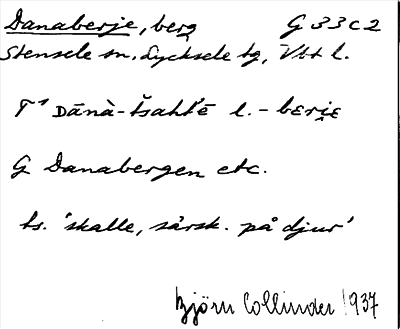 Danaberje, berg G 33 C 2
Stensele sn. Lycksele tg, Vbt l.
T¹ Dānà-tsaht'ē l. - berje
G Danabergen etc.
ts. 'skalle, särsk. på djur'
Björn Collinder 1937